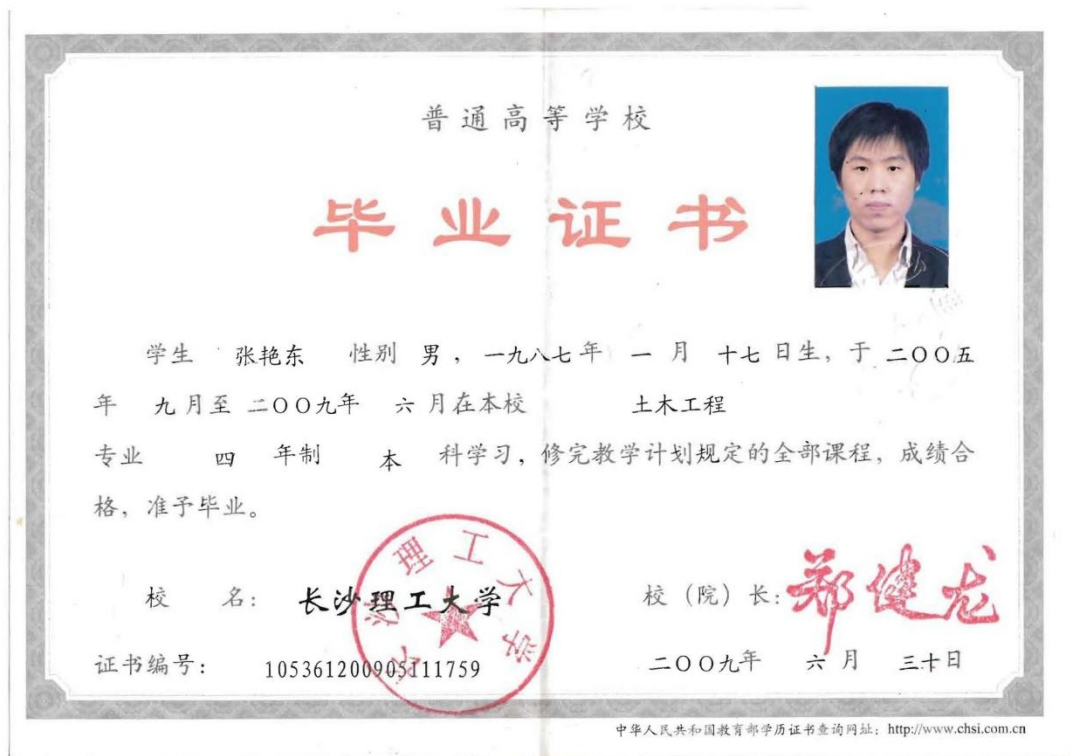 普通高等学校
毕业证书
学生 张艳东 性别 男，一九八七年 一 月 十七日生，于 二〇〇五
年 九月至 二〇〇九年 六月在本校 土木工程
专业 四 年制 本 科学习，修完教学计划规定的全部课程，成绩合
格，准予毕业。
校 名： 长沙理工大学 校（院）长：郑健龙
长沙理工大学
证书编号： 105361200905111759 二〇〇九年 六月 三十日
中华人民共和国教育部学历证书查询网址：http://www.chsi.com.cn